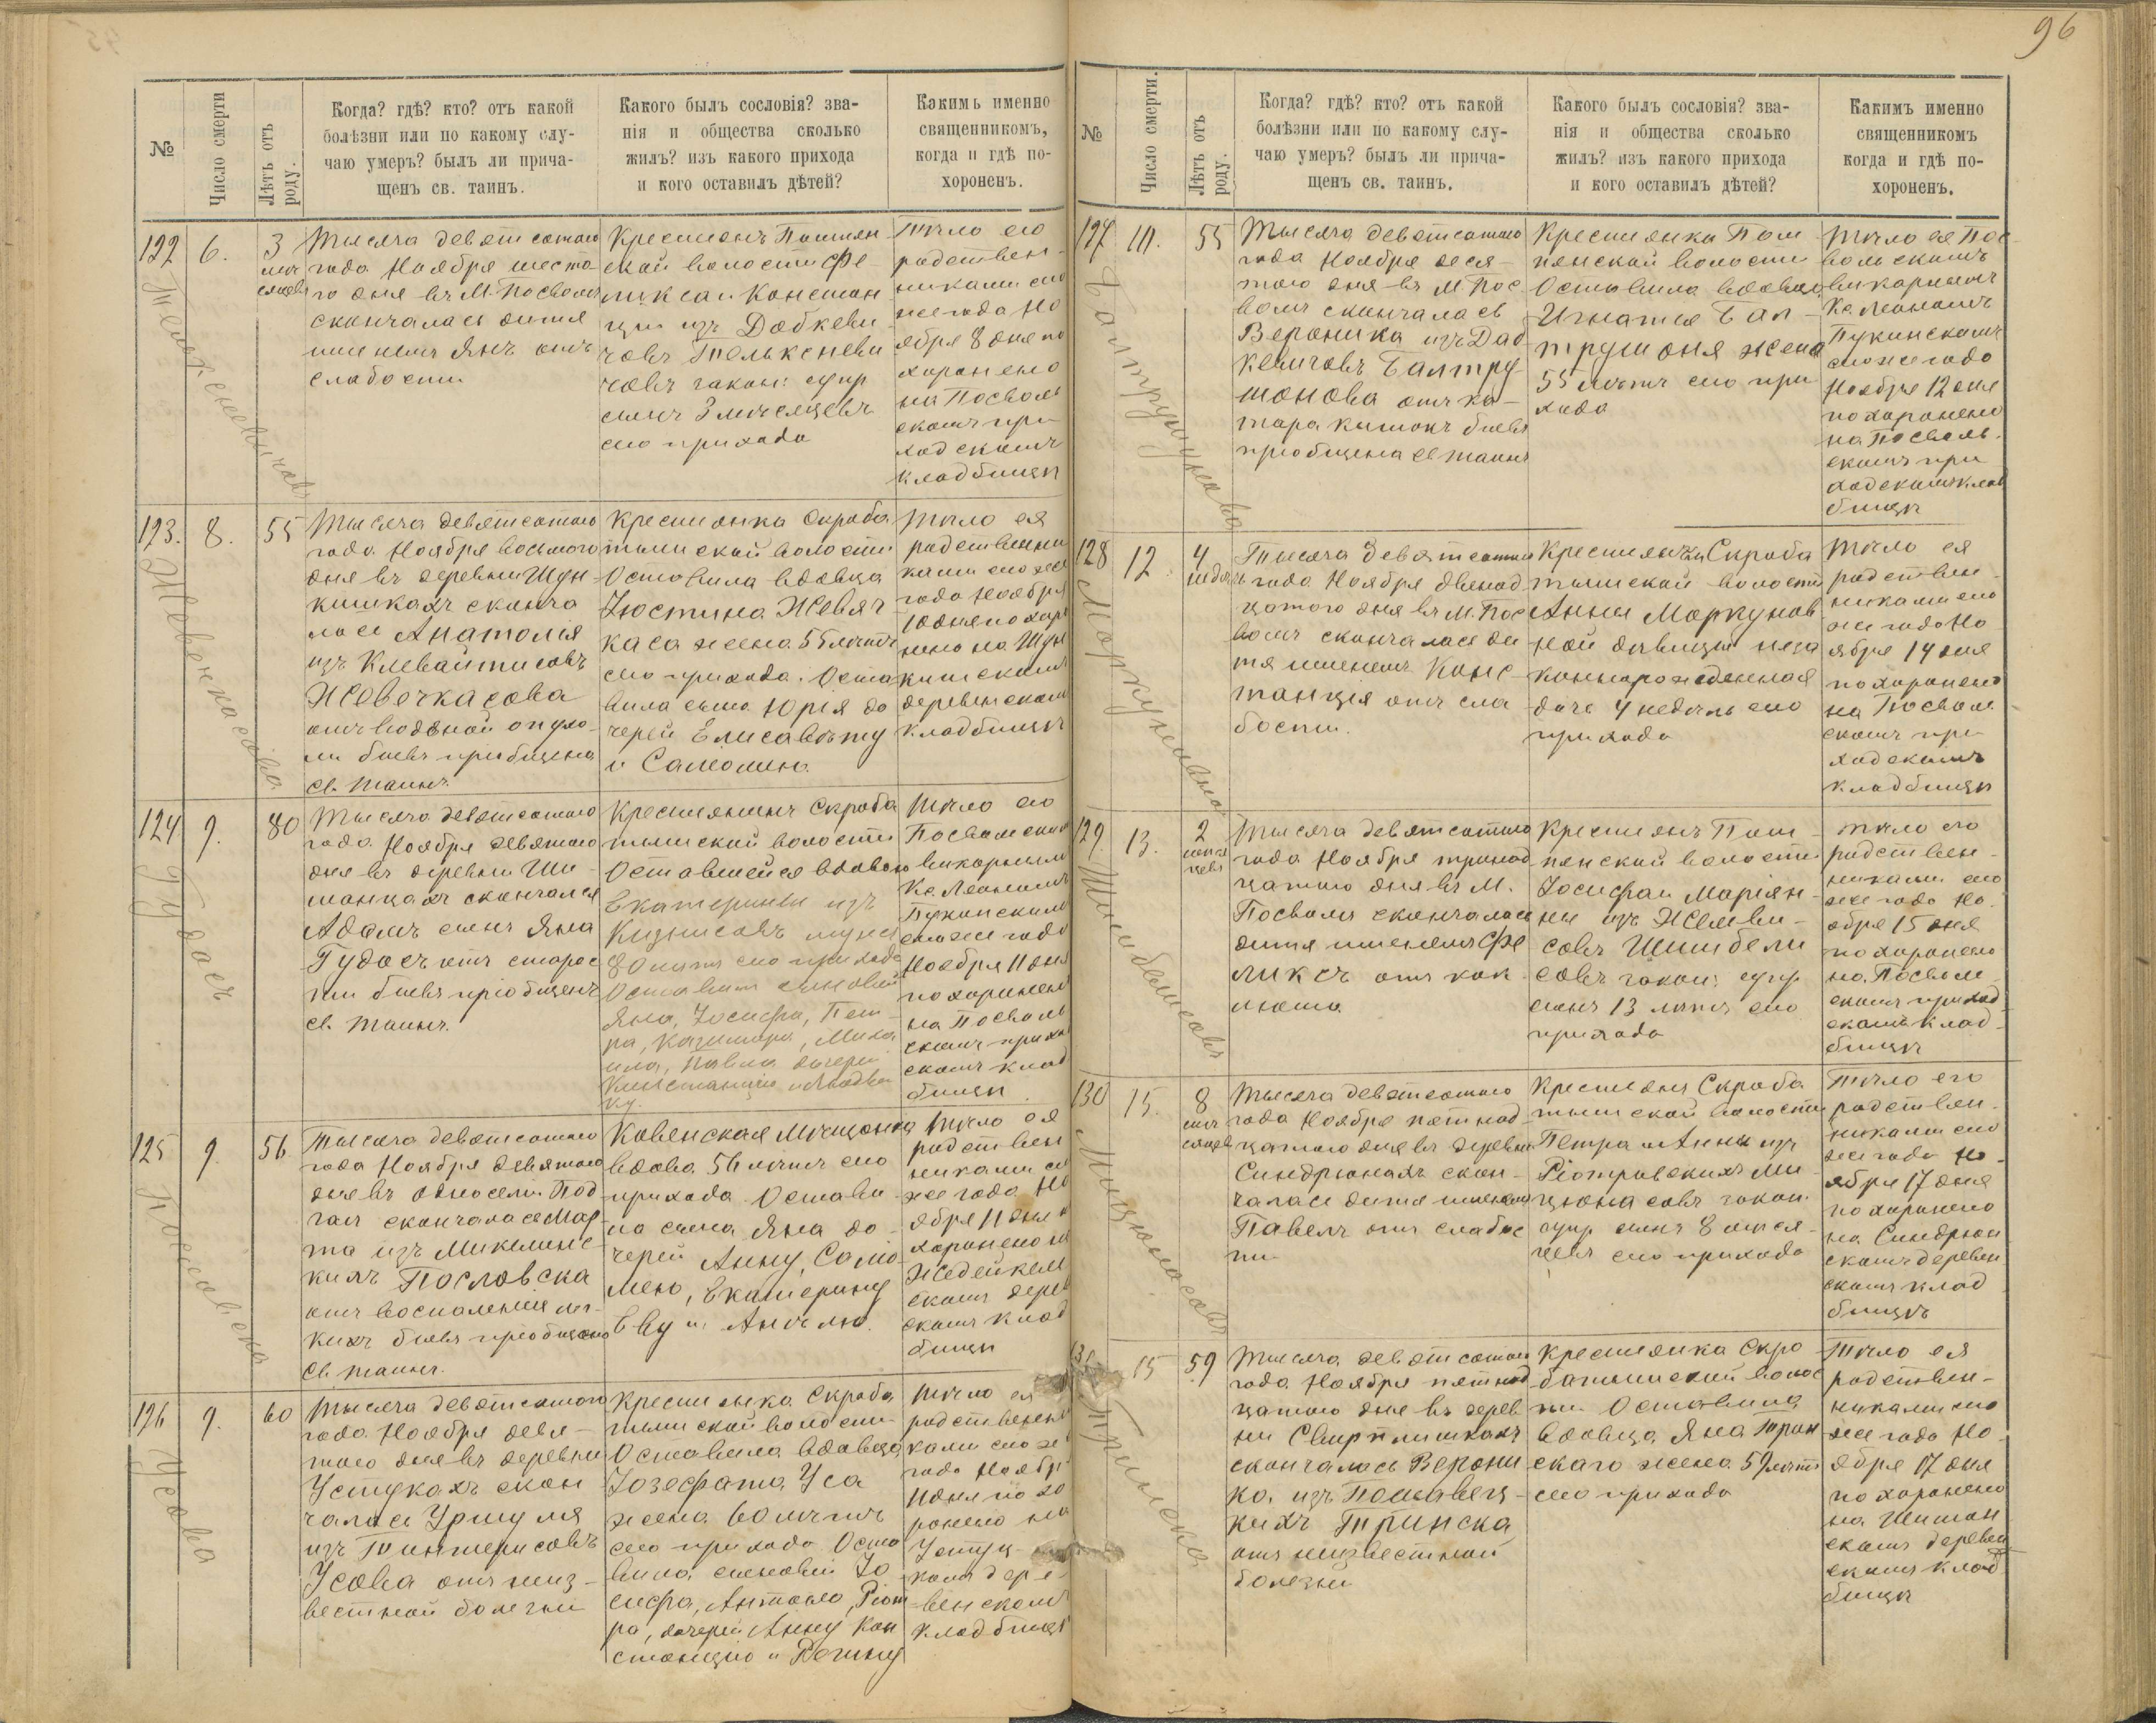 96
№
Число смерти
Лѣтъ отъ роду.
Когда? гдѣ? кто? отъ какой
болѣзни или по какому слу-
чаю умеръ? былъ ли прича-
щенъ св. таинъ.
Какого былъ сословія? зва-
нія и общества сколько
жилъ? изъ какого прихода
и кого оставилъ дѣтей?
Какимъ именно
священникомъ,
когда и гдѣ по-
хороненъ.
122
6.
3
Тысяча девятсотаго
года Ноября шеста
го дня въ М. Посволѣ
скончалась дитя
именемъ Янъ отъ
слабости
Крестянъ Помпян
ской волости Фе
ликса и Констан
ціи изъ Добкеви
човъ
закон: супр
сынъ 3 месяцевъ
сего прихода
Тѣло его
родствен-
никами сего
же года Но
ября 8 дня по
хоронено
на Посволь
скомъ при
ходскомъ
кладбищѣ
123.
8.
55
Жевечкасова
Тысяча девятсотаго
года Ноября восьмого
дня въ деревни
сконча
лась Анатолія
изъ Клевайтисовъ
Жевечкасова
отъ водяной опухо
ли бывъ пріобщена
св. таинъ.
Крестянка Скроба
тышской волости
Оставила вдовца
Юстина Жевеч
каса жена 55 летъ
сего прихода. Оста
вила сына Юрія до
черей Елисавѣту
и Саломію.
Тѣло ея
родственни
ками сего же
года Ноября
10 дня похоро
нено на
деревенскомъ
кладбищѣ
124
9.
80
Гудасъ
Тысяча девятсотаго
года Ноября девятаго
дня въ деревни Ши
манцахъ скончался
Адамъ сынъ Яна
Гудасъ отъ старос
ти бывъ пріобщенъ
св. таинъ.
Крестянинъ Скроба
тышской волости
Оставшейся вдовою
Екатерины изъ
мужъ
80 летъ сего прихода
Оставилъ сыновей
Яна, Іосифа, Пет-
ра, Казимира, Миха
ила, Павла дочерей
Констанцію
Тѣло его
Посвольскимъ
викарнымъ
Кс. Леономъ
Пукинскимъ
сего же года
Ноября 11 дня
похоронено
на Посволь
скомъ приход
скомъ клад
бищѣ
125
9.
56
Пословска
Тысяча девятсотаго
года Ноября девятаго
дня въ односел. Под
скончалась Мар
та изъ Микелинс
кихъ Пословска
отъ воспаленія ле-
кихъ бывъ пріобщена
св. таинъ.
Ковенская Мещанка
вдова 56 летъ сего
прихода Остави
ла сына Яна до
черей Анну, Сало
мею, Екатерину
Еву и Анелю.
Тѣло ея
родствен
никами сего
же года Но
ября 11 дня по
хоронено на
скомъ дерев
скомъ клад
бищѣ
126
9.
60
Усова
Тысяча девятсотаго
года Ноября девя-
таго дня въ деревни
Устукахъ скон
чалась Уршуля
изъ Гинтерисовъ
Усова отъ неиз-
вестной болезни
Крестянка Скроба
тышской волости
Оставила вдовца
Іозефата Уса
жена 60 летъ
сего прихода Оста
вила сыновей Іо
сифа, Антона, Піот
ра, дочерей Анну Кон
станцію и Регину
Тѣло ея
родственни
ками сего же
года Ноября
11 дня похо
ронено на
Устук
комъ дере-
венскомъ
кладбищѣ
№
Число смерти.
Лѣтъ отъ роду.
Когда? гдѣ? кто? отъ какой
болѣзни или по какому слу-
чаю умеръ? былъ ли прича-
щенъ св. таинъ.
Какого былъ сословія? зва-
нія и общества сколько
жилъ? изъ какого прихода
и кого оставилъ дѣтей?
Какимъ именно
священникомъ
когда и гдѣ по-
хороненъ.
127
10.
55
Тысяча девятсотаго
года Ноября деся-
таго дня въ М Пос
волѣ скончалась
Вероника изъ Дад
кевичовъ Балтру
шонова отъ ка-
тара кишокъ бывъ
пріобщена св таинъ
Крестянка Пом
пянской волости
Оставила вдовца
Игнатія Бал-
трушоня жена
55 летъ сего при
хода
Тѣло ея Пос
вольскимъ
викарнымъ
Кс. Леономъ
Пукинскимъ
сего же года
Ноября 12 дня
похоронено
на Посволь.
скомъ при
ходскомъ клад
бищѣ
128
12
4
недель
Тысяча девятсотаго
года Ноября двенад
цатого дня въ М. Пос
волѣ скончалась ди
тя именемъ Конс
танція отъ сла
бости.
Крестянки Скроба
тышской волости
Анны Моркунов
ной девицы неза
коннорожденная
дочь 4 недель сего
прихода
Тѣло ея
родствен
никами сего
же года Но
ября 14 дня
похоронено
на Посволь
скомъ при
ходскомъ
кладбищѣ
129
13.
2
Тысяча девятсотаго
года Ноября тринад
цатаго дня въ М.
Посволѣ скончалась
дитя именемъ Фе
ликсъ отъ кок
люша
Крестянъ Пом
пянской волости
Іосифа и Маріян-
ны изъ
закон: супр
сынъ 13 летъ сего
прихода
Тѣло его
родствен-
никами сего
же года Но.
ября 15 дня
похоронено
на Посволь
скомъ приход
скомъ клад-
бищѣ
130
15.
8
месяцевъ
Тысяча девятсотаго
года Ноября пятнад-
цатого дня въ деревни
Синдрюнахъ скон-
чалась дитя именемъ
Павелъ отъ слабос
ти
Крестянъ Скроба
тышской волости
Петра и Анны изъ
Піотровскихъ Ми
цюнасовъ закон
супр сынъ 8 меся-
цевъ сего прихода
Тѣло его
родствен.
никами сего
же года Но-
ября 17 дня
похоронено
на Синдрюн
скомъ деревен
скомъ клад
бищѣ
15
59
Тысяча девятсотаго
года Ноября пятнад
цатого дня въ дерев
ни Свирплишкахъ
скончалась Верони
ка изъ
кихъ Тринска
отъ неизвестной
болезни
Крестянка Скро
батышской волос
ти Оставила
вдовца Яна Трин
скаго жена 59 летъ
сего прихода
Тѣло ея
родствен-
никами сего
же года Но-
ября 17 дня
похоронено
на Шиман
скомъ деревен
скомъ клад
бищѣ